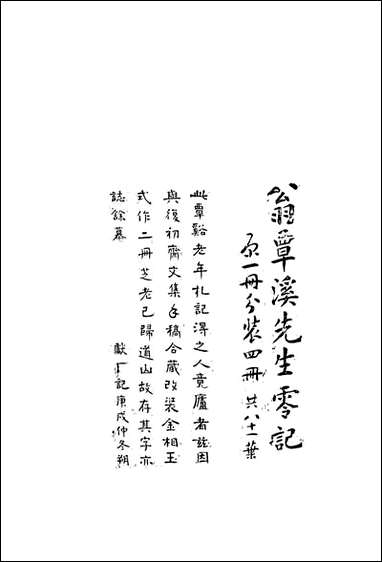 翁覃溪先生零記
原一冊分裝四冊 共八十一葉
此覃谿老年札記得之人竟廬者玆因
與復初齋文集手稿合藏改裝金相玉
式作二冊芝老已歸道山故存其字亦
誌餘慕
歗厂記庚戌仲冬朔